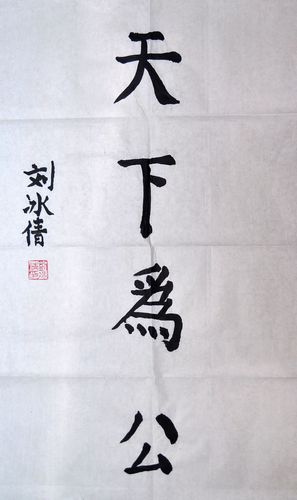 天下爲公
刘冰倩